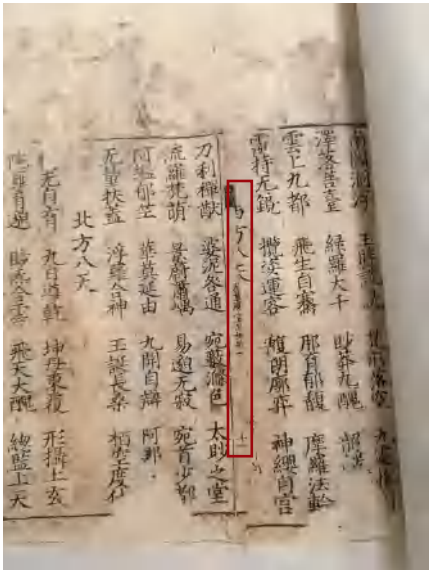 南閻洞浮　玉眸詵詵　梵形落空　九靈推前
澤落菩臺　綠羅大千　眇莽九醜
雲上九都　飛生自騫　那育郁馥　摩羅法輪
霐持无鏡　攬姿運容　馥朗廓弈　神纓自宮
西方八天　十一
刀利禪猷　婆泥咎通　宛藪滌色　太眇之堂
流羅梵萌　景蔚蕭嵎　易邈无寂　宛首少都
阿濫郁竺　華莫延由　九開自辯　阿那
无量扶蓋　浮羅合神　玉誕長桑　栢空度仙
北方八天
无自育　九日導乾　坤母東覆　形攝上玄
陀羅育邈　眇炁合雲　飛天大醜　總監上天